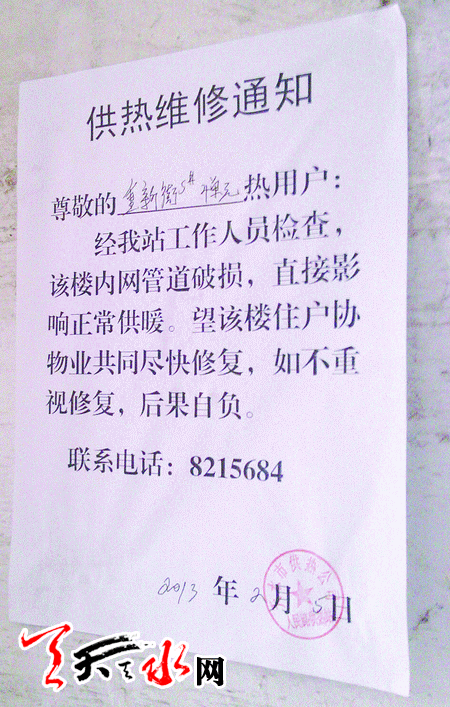 供热维修通知
尊敬的重新街5#1单元热用户：
经我站工作人员检查，
该楼内网管道破损，直接影
响正常供暖。望该楼住户协
物业共同尽快修复，如不重
视修复，后果自负。
联系电话：8215684
2013年2月5日
市供热公
人民
天天天水网